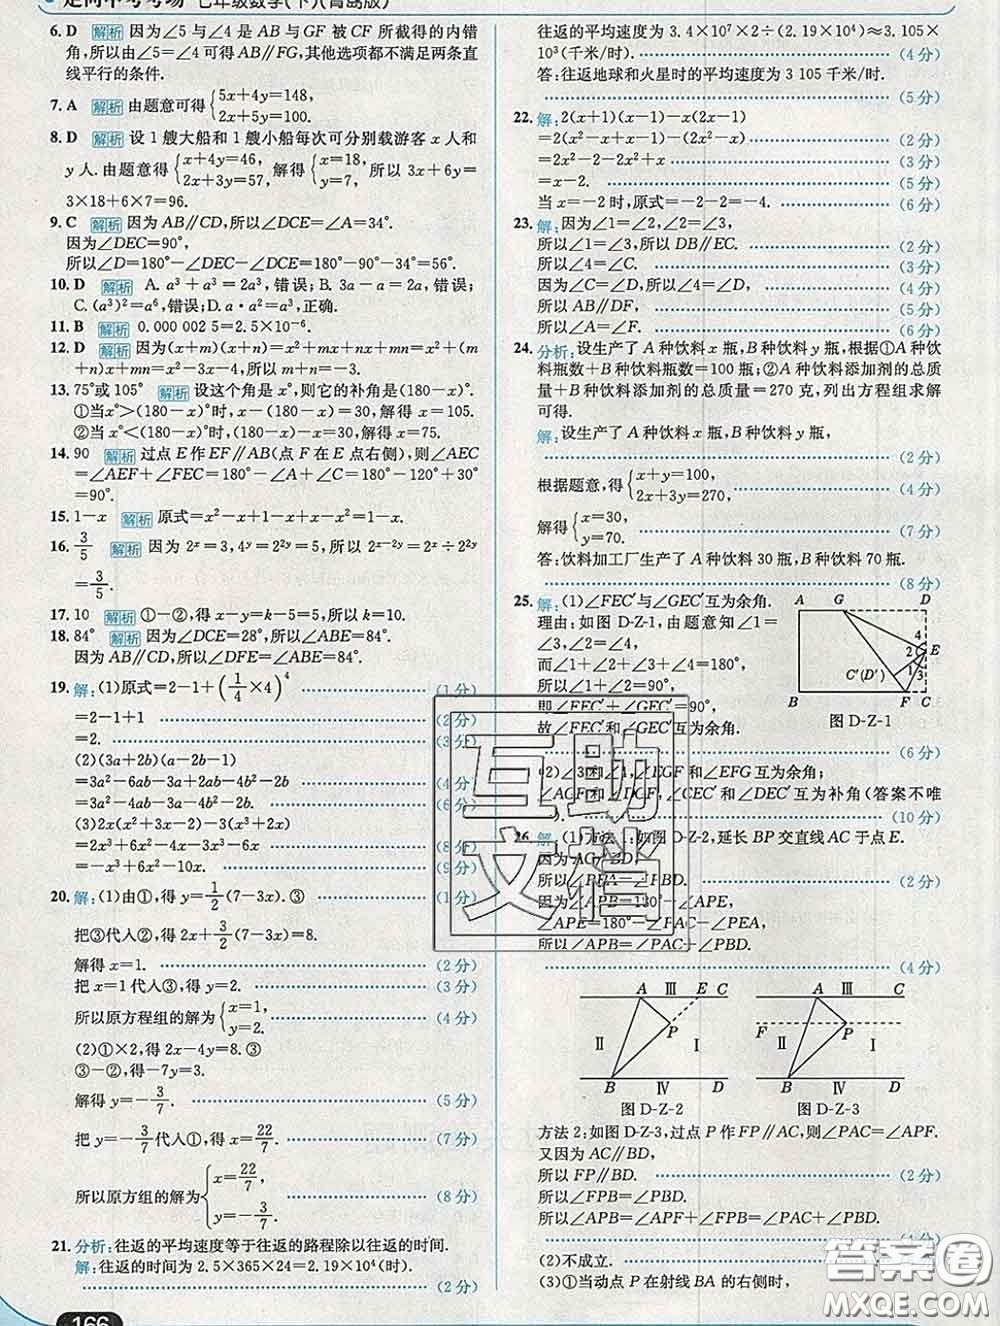 走向中考考场 七年级数学(下)(青岛版)
6. D 解析 因为∠5与∠4是AB与GF被CF所截得的内错
角,所以由∠5=∠4可得AB∥FG,其他选项都不满足两条直
线平行的条件.
7. A 解析 由题意可得{5x+4y=148, 2x+5y=100.
8. D 解析 设1艘大船和1艘小船每次可分别载游客x人和
y人.由题意得{x+4y=46, 2x+3y=57, 解得{x=18, y=7, 所以3x+6y=
3×18+6×7=96.
9. C 解析 因为AB∥CD,所以∠DCE=∠A=34°.
因为∠DEC=90°,
所以∠D=180°-∠DEC-∠DCE=180°-90°-34°=56°.
10. D 解析 A. a³+a³=2a³,错误;B. 3a-a=2a,错误;
C. (a³)²=a⁶,错误;D. a·a²=a³,正确.
11. B 解析 0.000 002 5=2.5×10⁻⁶.
12. D 解析 因为(x+m)(x+n)=x²+mx+nx+mn=x²+(m
+n)x+mn=x²-3x-4,所以m+n=-3.
13. 75°或105° 解析 设这个角是x°,则它的补角是(180-x)°.
①当x°>(180-x)°时,x-(180-x)=30,解得x=105.
②当x°<(180-x)°时,(180-x)-x=30,解得x=75.
14. 90 解析 过点E作EF∥AB(点F在E点右侧),则∠AEC
=∠AEF+∠FEC=180°-∠A+∠C=180°-120°+30°
=90°.
15. 1-x 解析 原式=x²-x+1-x+x-x²=1-x.
16. 3/5 解析 因为2ˣ=3,4ʸ=2²ʸ=5,所以2ˣ⁻²ʸ=2ˣ÷2²ʸ
=3/5.
17. 10 解析 ①-②,得x-y=k-5=5,所以k=10.
18. 84° 解析 因为∠DCE=28°,所以∠ABE=84°.
因为AB∥CD,所以∠DFE=∠ABE=84°.
19. 解:(1)原式=2-1+(1/4×4)⁴ (1分)
=2-1+1 (2分)
=2. (3分)
(2)(3a+2b)(a-2b-1)
=3a²-6ab-3a+2ab-4b²-2b (4分)
=3a²-4ab-3a-4b²-2b. (6分)
(3)2x(x²+3x-2)-3(x²+2x)
=2x³+6x²-4x-3x²-6x (8分)
=-x³+9x²-10x. (9分)
20. 解:(1)由①,得y=1/2(7-3x).③ (1分)
把③代入②,得2x+3/2(7-3x)=8.
解得x=1. (2分)
把x=1代入③,得y=2. (3分)
所以原方程组的解为{x=1, y=2. (4分)
(2)①×2,得2x-4y=8.③
③-②,得-7y=3.
解得y=-3/7. (5分)
把y=-3/7代入①,得x=22/7. (7分)
所以原方程组的解为{x=22/7, y=-3/7. (8分)
21. 分析:往返的平均速度等于往返的路程除以往返的时间.
解:往返的时间为2.5×365×24=2.19×10⁴(时).
(2分)
166
往返的平均速度为3.4×10⁷×2÷(2.19×10⁴)≈3.105×
10³(千米/时). (4分)
答:往返地球和火星时的平均速度为3 105千米/时.
(5分)
22. 解:2(x+1)(x-1)-x(2x-1)
=2(x²-x+x-1)-(2x²-x) (2分)
=2x²-2-2x²+x (3分)
=x-2. (5分)
当x=-2时,原式=-2-2=-4. (6分)
23. 解:因为∠1=∠2,∠2=∠3,
所以∠1=∠3,所以DB∥EC. (2分)
所以∠4=∠C. (3分)
因为∠C=∠D,所以∠4=∠D, (4分)
所以AB∥DF, (5分)
所以∠A=∠F. (6分)
24. 分析:设生产了A种饮料x瓶,B种饮料y瓶,根据①A种饮
料瓶数+B种饮料瓶数=100瓶;②A种饮料添加剂的总质
量+B种饮料添加剂的总质量=270克,列出方程组求解
可得.
解:设生产了A种饮料x瓶,B种饮料y瓶,
(2分)
根据题意,得{x+y=100, 2x+3y=270, (4分)
解得{x=30, y=70. (7分)
答:饮料加工厂生产了A种饮料30瓶,B种饮料70瓶.
(8分)
25. 解:(1)∠FEC′与∠GEC′互为余角.
理由:如图D-Z-1,由题意知∠1=
∠3,∠2=∠4.
而∠1+∠2+∠3+∠4=180°,
所以∠1+∠2=90°,
即∠FEC′+∠GEC′=90°,
故∠FEC′和∠GEC′互为余角.
(6分)
A G D
4 2 E
C′(D′) 1 3
B F C
图D-Z-1
(2)∠3和∠1,∠EGF和∠EFG互为余角;
∠AGF和∠DGF,∠CEC′和∠DEC′互为补角(答案不唯
一). (10分)
26. 解:(1)方法1:如图D-Z-2,延长BP交直线AC于点E.
因为AC∥BD,
所以∠PEA=∠PBD. (2分)
因为∠APB=180°-∠APE,
∠APE=180°-∠PAC-∠PEA,
所以∠APB=∠PAC+∠PBD.
(4分)
A Ⅲ E C
Ⅱ P Ⅰ
B Ⅳ D
图D-Z-2
A Ⅲ C
F P
Ⅱ Ⅰ
B Ⅳ D
图D-Z-3
方法2:如图D-Z-3,过点P作FP∥AC,则∠PAC=∠APF.
又因为AC∥BD,
所以FP∥BD. (2分)
所以∠FPB=∠PBD.
所以∠APB=∠APF+∠FPB=∠PAC+∠PBD.
(4分)
(2)不成立.
(3)①当动点P在射线BA的右侧时,
互助文档
答案圈
MXQE.COM